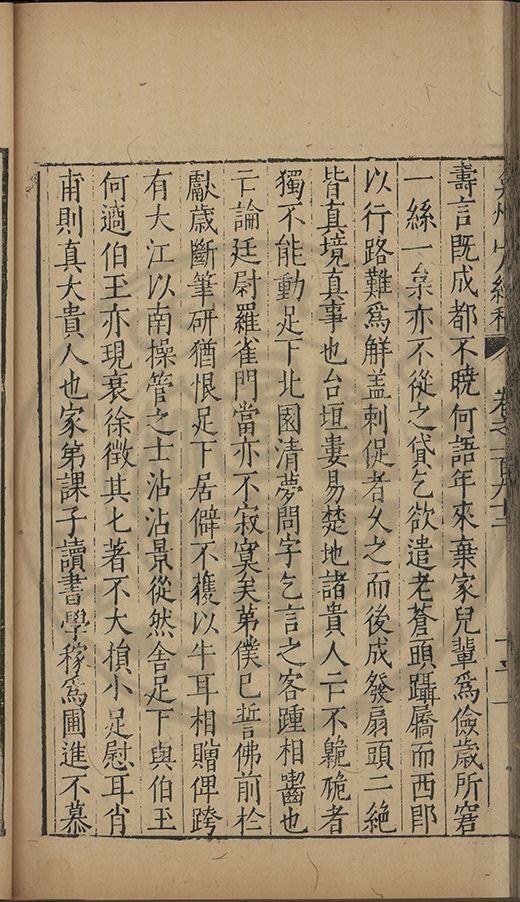 弇州山人續稿 卷之一百九十三
壽言既成都不曉何語年來棄家兒輩爲儉歲所窘
一絲一枲亦不從之貸乞欲遣老蒼頭躡屩而西郎
以行路難爲解盖刺促者久之而後成發扇頭二絶
皆真境真事也台垣婁易楚地諸貴人亡不鼿硊者
獨不能動足下北園清夢問字乞言之客踵相齧也
亡論廷尉羅雀門當亦不寂寞矣第僕巳誓佛前於
獻歲斷筆研猶恨足下居僻不獲以牛耳相贈俾跨
有大江以南操管之士沾沾景從然舍足下與伯玉
何適伯玉亦現衰徐徴其匕著不大損小足慰耳肖
甫則真大貴人也家弟課子讀書學稼爲圃進不慕